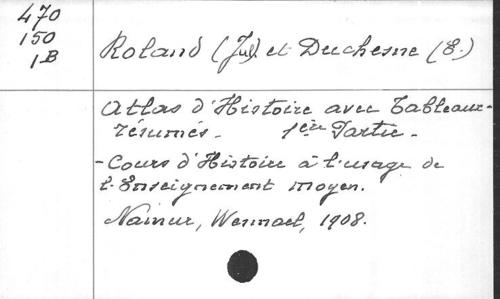 470
150
1B
Roland (Jul) et Duchesne (E.)
Atlas d'Histoire avec Tableaux-
résumés. 1ère Partie.
- Cours d'Histoire à l'usage de
l'Enseignement moyen.
Namur, Wesmael, 1908.